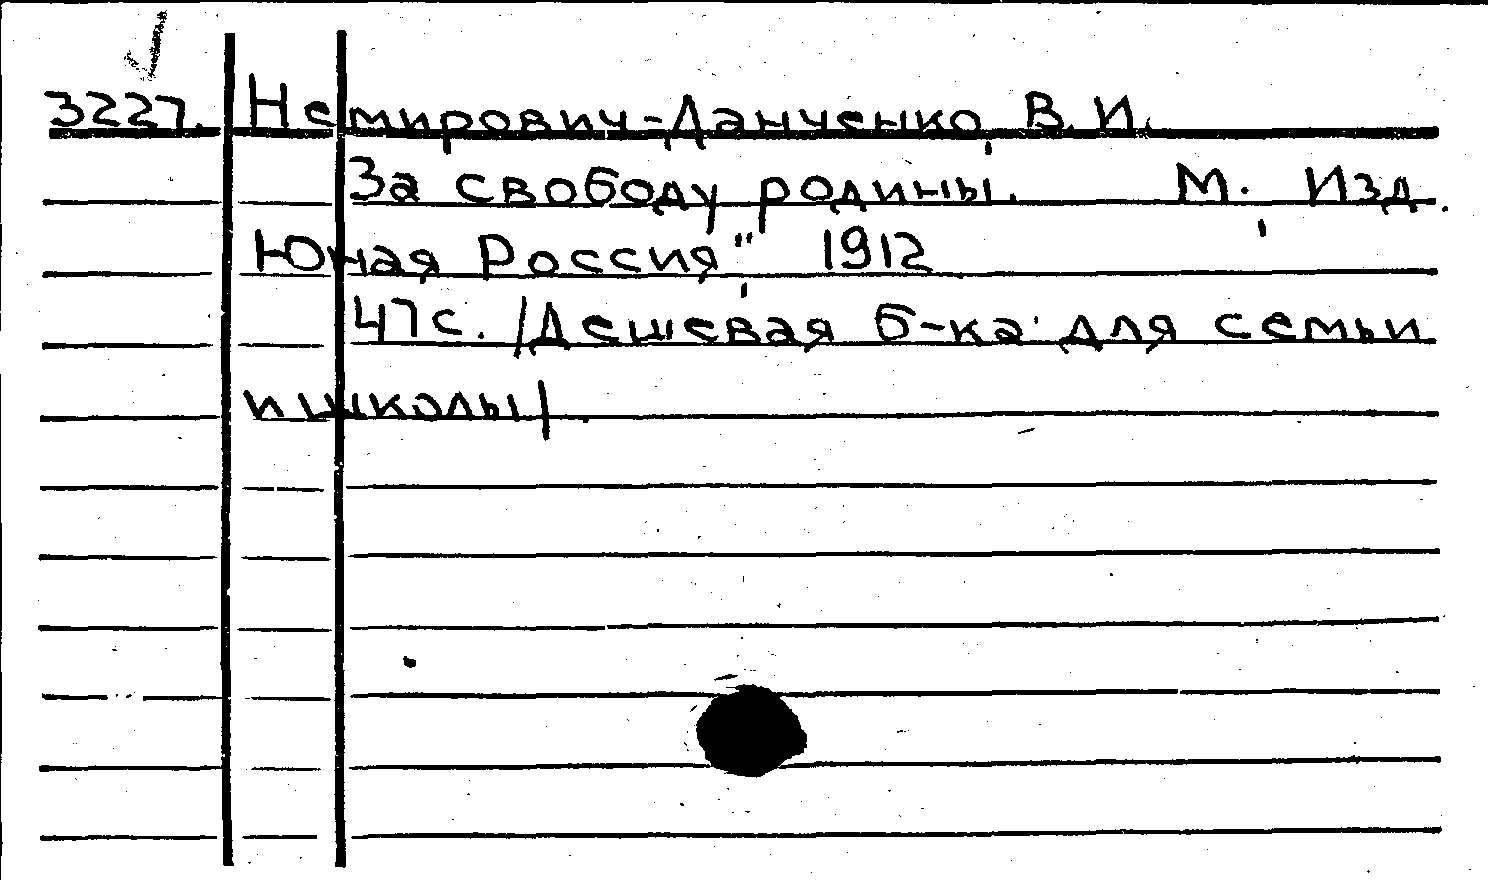 3227. Немирович-Данченко, В.И.
За свободу родины. М., Изд.
Юная Россия", 1912
47с. /Дешевая б-ка для семьи
и школы/.